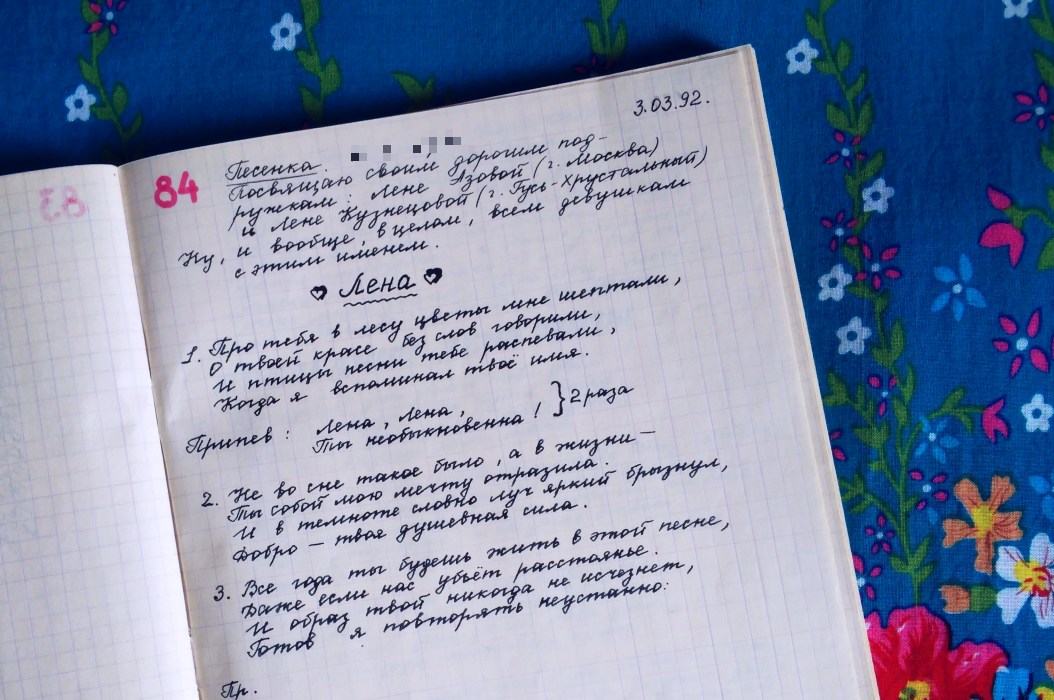 3.03.92.
83
84
Песенка.
Посвящаю своим дорогим под-
ружкам: Лене Язовой (г. Москва)
и Лене Кузнецовой (г. Гусь-Хрустальный)
Ну, и вообще, в целом, всем девушкам
с этим именем.
Лена
1. Про тебя в лесу цветы мне шептали,
О твоей красе без слов говорили,
И птицы песни тебе распевали,
Когда я вспоминал твоё имя.
Припев: Лена, Лена,
Ты необыкновенна! } 2 раза
2. Не во сне такое было, а в жизни —
Ты собой мою мечту отразила.
И в темноте словно луч яркий брызнул,
Добро — твоя душевная сила.
3. Все года ты будешь жить в этой песне,
Даже если нас убьёт расстоянье.
И образ твой никогда не исчезнет,
Готов я повторять неустанно:
Пр.